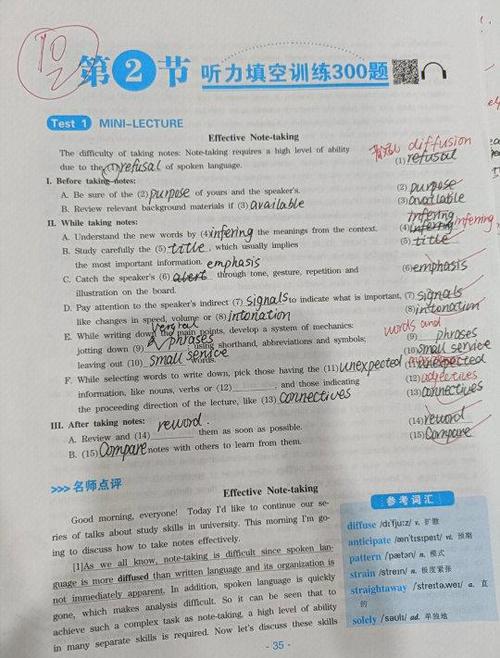 10
2
第2节 听力填空训练300题
Test 1 MINI-LECTURE
Effective Note-taking
diffusion
The difficulty of taking notes: Note-taking requires a high level of ability
due to the (1) refusal of spoken language.
(1) refusal
I. Before taking notes:
A. Be sure of the (2) purpose of yours and the speaker's.
(2) purpose
B. Review relevant background materials if (3) available
(3) available
II. While taking notes:
inferring
A. Understand the new words by (4) infering the meanings from the context.
(4) infering inferring
B. Study carefully the (5) title, which usually implies
(5) title
the most important information. emphasis
C. Catch the speaker's (6) alert through tone, gesture, repetition and
(6) emphasis
illustration on the board.
D. Pay attention to the speaker's indirect (7) signals to indicate what is important,
(7) signals
like changes in speed, volume or (8) intonation
(8) intonation
E. While writing down the main points, develop a system of mechanics:
words and
jotting down (9) phrases using shorthand, abbreviations and symbols;
(9) phrases
leaving out (10) small service words.
(10) small service
F. While selecting words to write down, pick those having the (11) unexpected
(11) unexpected
information, like nouns, verbs or (12) ______, and those indicating
(12) adjectives
the proceeding direction of the lecture, like (13) connectives
(13) connectives
III. After taking notes: reword.
A. Review and (14) ______ them as soon as possible.
(14) reword
B. (15) Compare notes with others to learn from them.
(15) Compare
>>> 名师点评
Effective Note-taking
Good morning, everyone! Today I'd like to continue our se-
ries of talks about study skills in university. This morning I'm go-
ing to discuss how to take notes effectively.
[1]As we all know, note-taking is difficult since spoken lan-
guage is more diffused than written language and its organization is
not immediately apparent. In addition, spoken language is quickly
gone, which makes analysis difficult. So it can be seen that to
achieve such a complex task as note-taking, a high level of ability
in many separate skills is required. Now let's discuss these skills
参考词汇
diffuse /dɪˈfjuːz/ v. 扩散
anticipate /ænˈtɪsɪpeɪt/ vt. 预期
pattern /ˈpætən/ n. 模式
strain /streɪn/ n. 极度紧张
straightaway /ˈstreɪtəweɪ/ a. 直
的
solely /ˈsəʊlli/ ad. 单独地
- 35 -